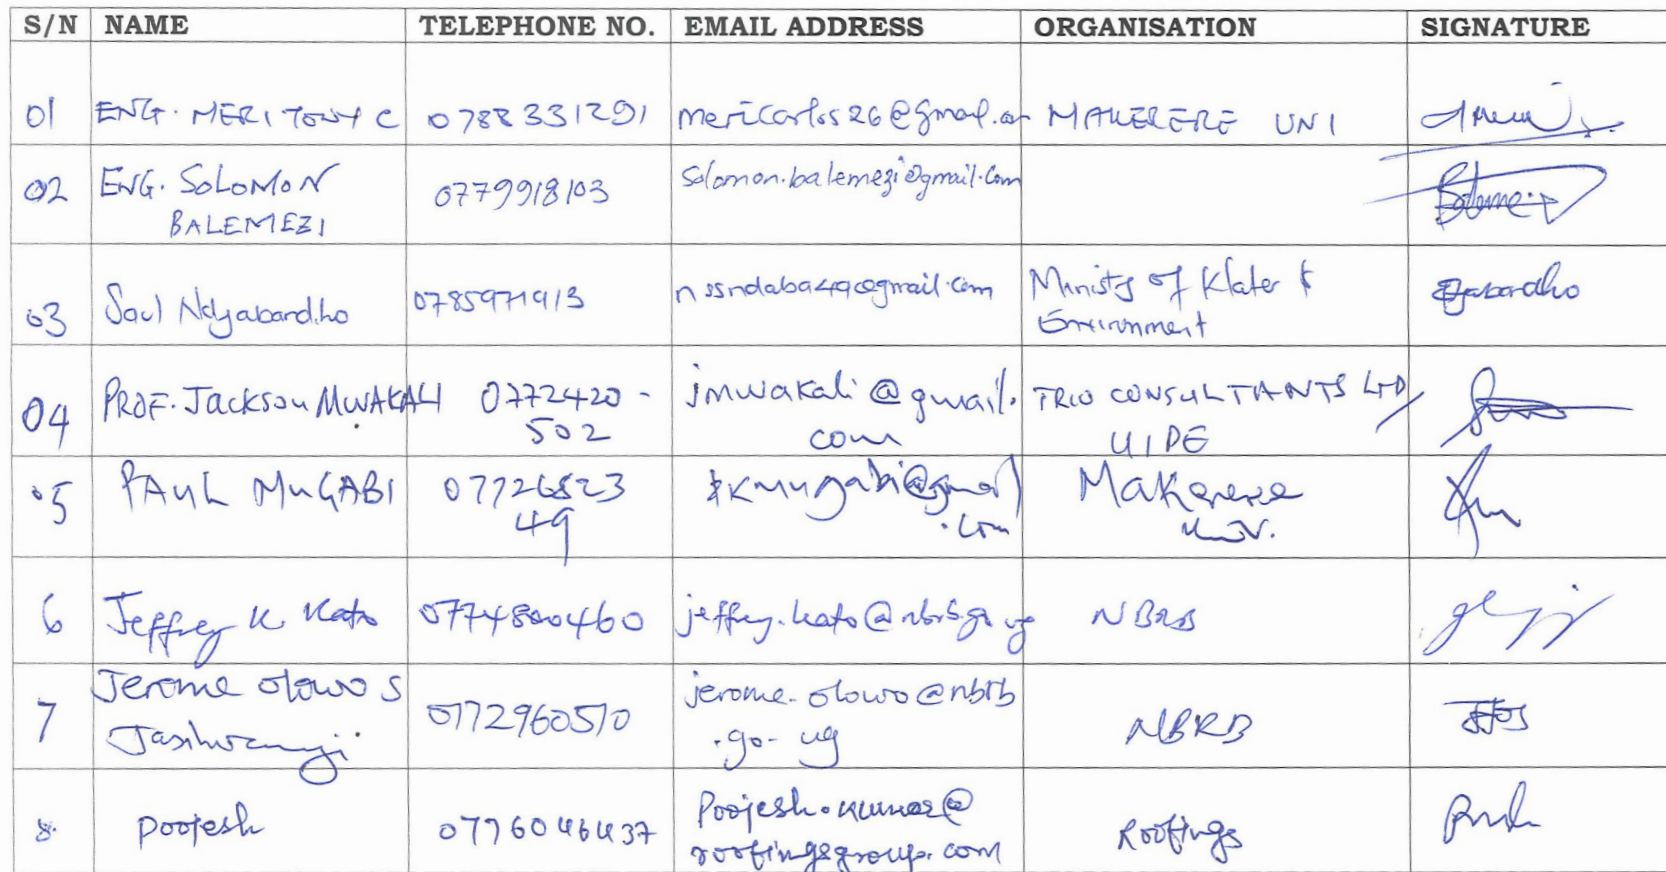 S/N NAME TELEPHONE NO. EMAIL ADDRESS ORGANISATION SIGNATURE
01 ENG. MERI TONY C 0788331291 mericarlos26@gmail.com MAKERERE UNI
02 ENG. SOLOMON 0779918103 solomon.balemezi@gmail.com
BALEMEZI
03 Saul Ndyabandho 0785971913 nssndaba49@gmail.com Ministry of Water &
Environment
04 PROF. Jackson MWAKALI 0772420- jmwakali@gmail. TRIO CONSULTANTS LTD/
502 com UIPE
05 PAUL MUGABI 07726823 @gmail Makerere
49 .com Univ.
6 Jeffrey K Kato 0774800460 jeffrey.kato@nbrb.go.ug NBRB
7 Jerome Olowo S 0772960510 jerome.olowo@nbrb NBRB
.go.ug
8 Poojesh 0776046437 Poojesh.kumar@ Roofings
roofingsgroup.com